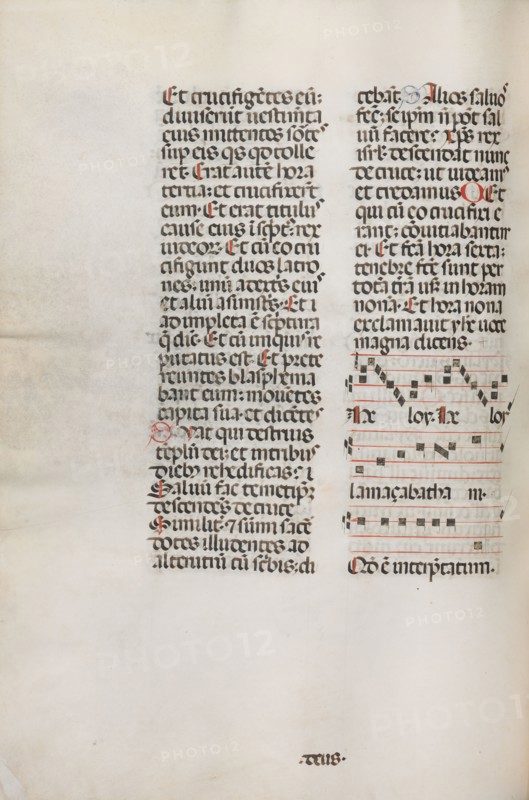 Et crucifigētes eū:
diuiserūt uestimēta
eius mittentes sorte
sup eis qs qd tolle
ret. Erat autē hora
tertia: et crucifixert
eum. Et erat titulus
cause eius iscpt: rex
iudeor. Et cū eo cru
cifigunt duos latro
nes. unū a dextris eius
et aliū a sinistris. Et i
adimpleta ē scptura
q dic. Et cū iniquis re
putatus est. Et prete
reuntes blasphema
bant eum: mouētes
capita sua. et dicētes
Vat qui destruis
teplū dei: et in tribus
dieb rehedificas: i
Saluū fac temetipz
descendes de cruce
Similit 7 sūmi sace
dotes illudentes ad
alterutrū cū scbis: di
cebāt. Alios saluos
fec: se ipm n pot sal
uū facere: xps rex
isrl: descendat nunc
de cruce: ut uideams
et credamus. Et
qui cū eo crucifixi e
rant: cōuitiabantur
ei. Et fca hora sexta:
tenebre fce sunt per
totā trā usq in horam
nonā. Et hora nona
exclamauit yhs uoce
magna dicens.
loy. loy
lamaçabatha ni.
Qd ē interptatum.
.deus.